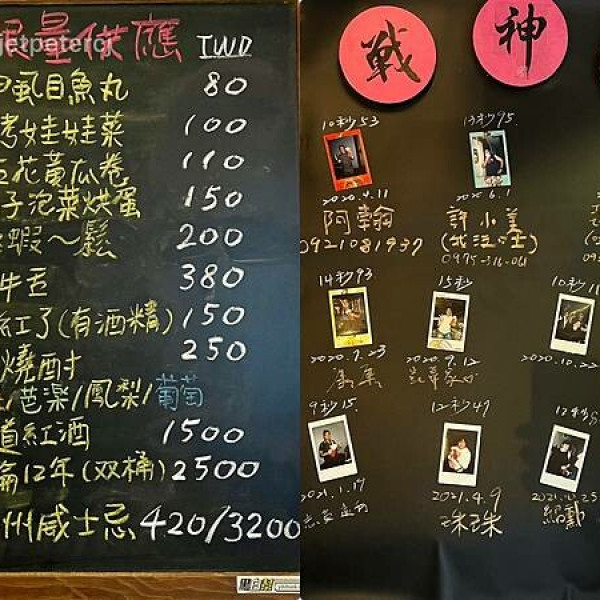 jetpetercj
限量供應 TWD
虱目魚丸 80
烤娃娃菜 100
五花黃瓜卷 110
子泡菜烘蛋 150
蝦～鬆 200
牛舌 380
紅了(有酒精) 150
燒酎 250
/芭樂/鳳梨/葡萄
道紅酒 1500
12年(双桶) 2500
州威士忌 420/3200
戰神
10秒53
2020.4.11
阿翰
0921081937
13秒95
2020.6.1
許小姜
0975-316-061
14秒93
2020.7.23
15秒
2020.9.12
10秒11
2020.10.22
9秒15
2021.1.17
12秒47
2021.4.9
珠珠
12秒
紹勳